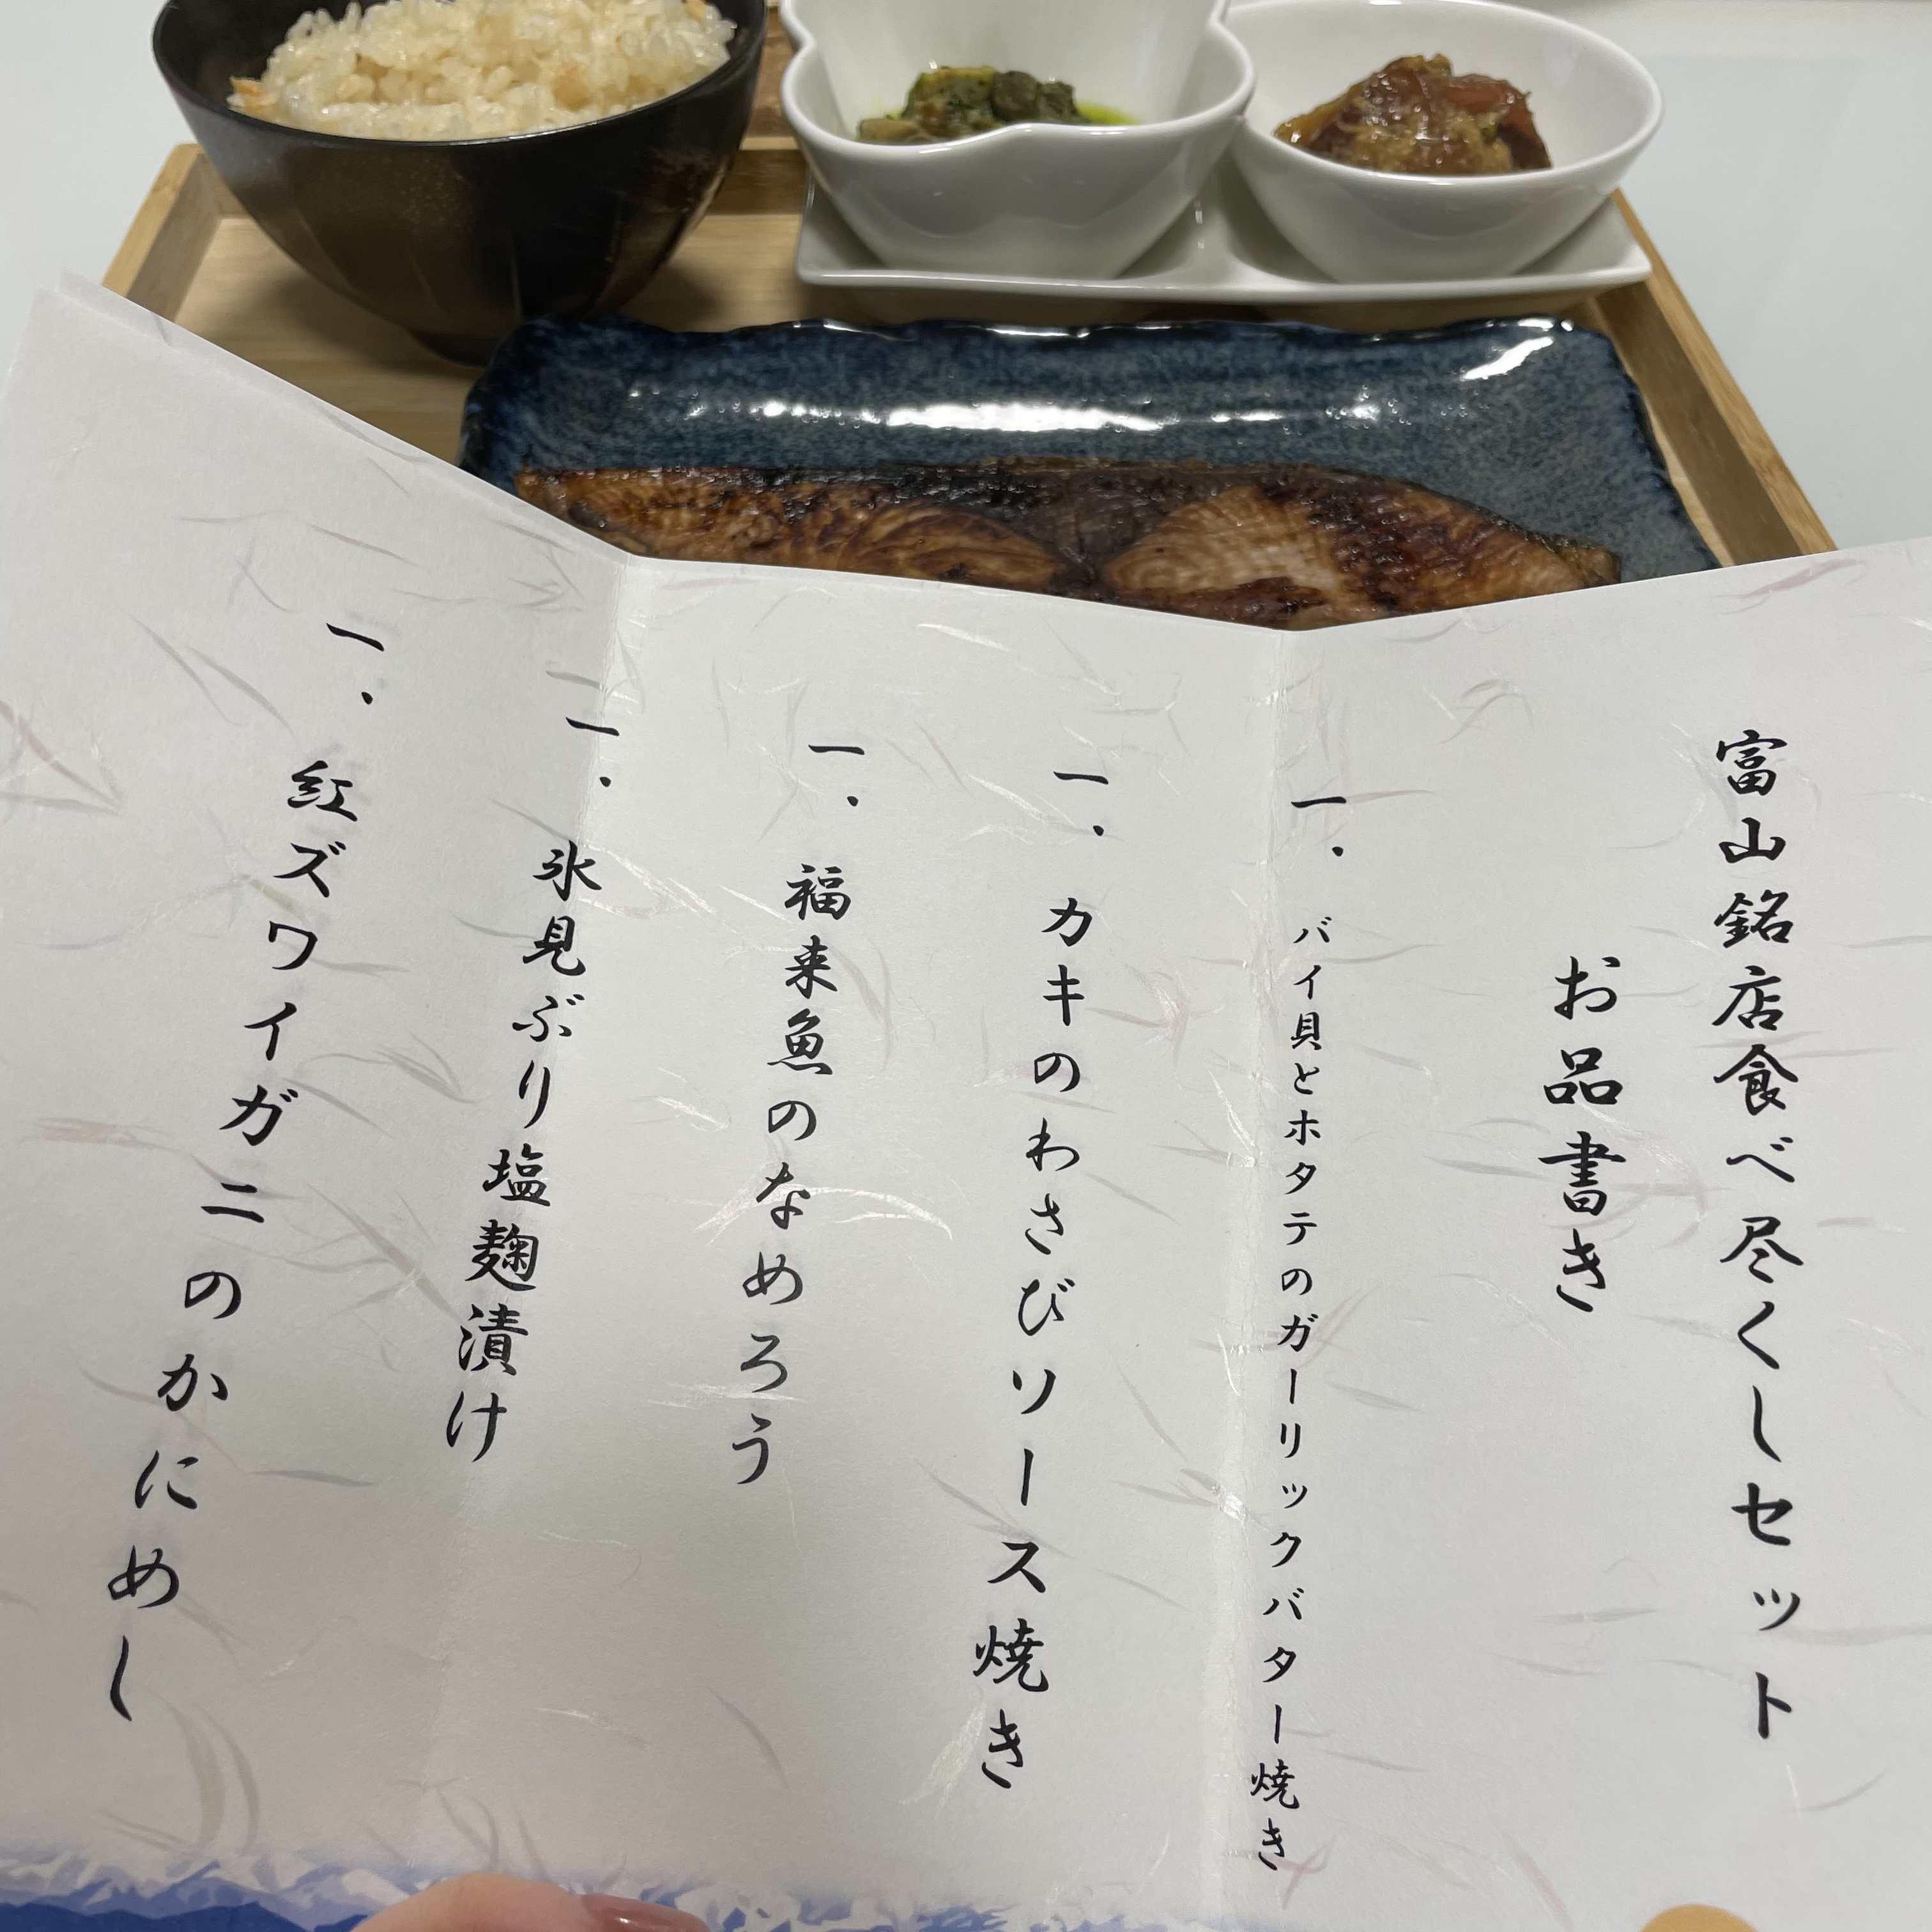 富山銘店食べ尽くしセット
お品書き
一．バイ貝とホタテのガーリックバター焼き
一．カキのわさびソース焼き
一．福来魚のなめろう
一．氷見ぶり塩麹漬け
一．紅ズワイガニのかにめし